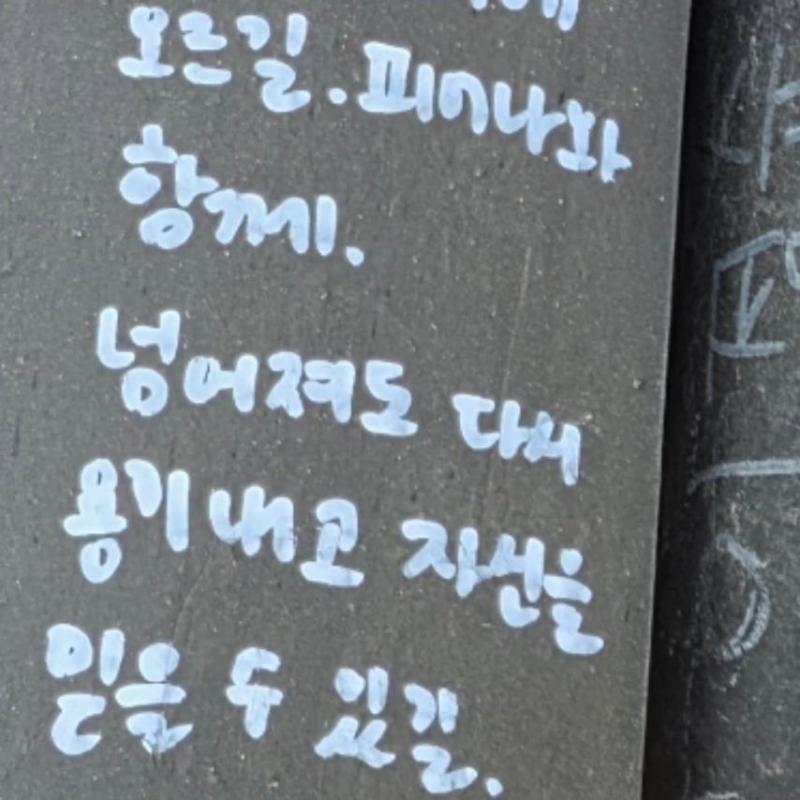 오르길. 피어나와
함께.
넘어져도 다시
용기 내고 자신을
믿을 수 있길.